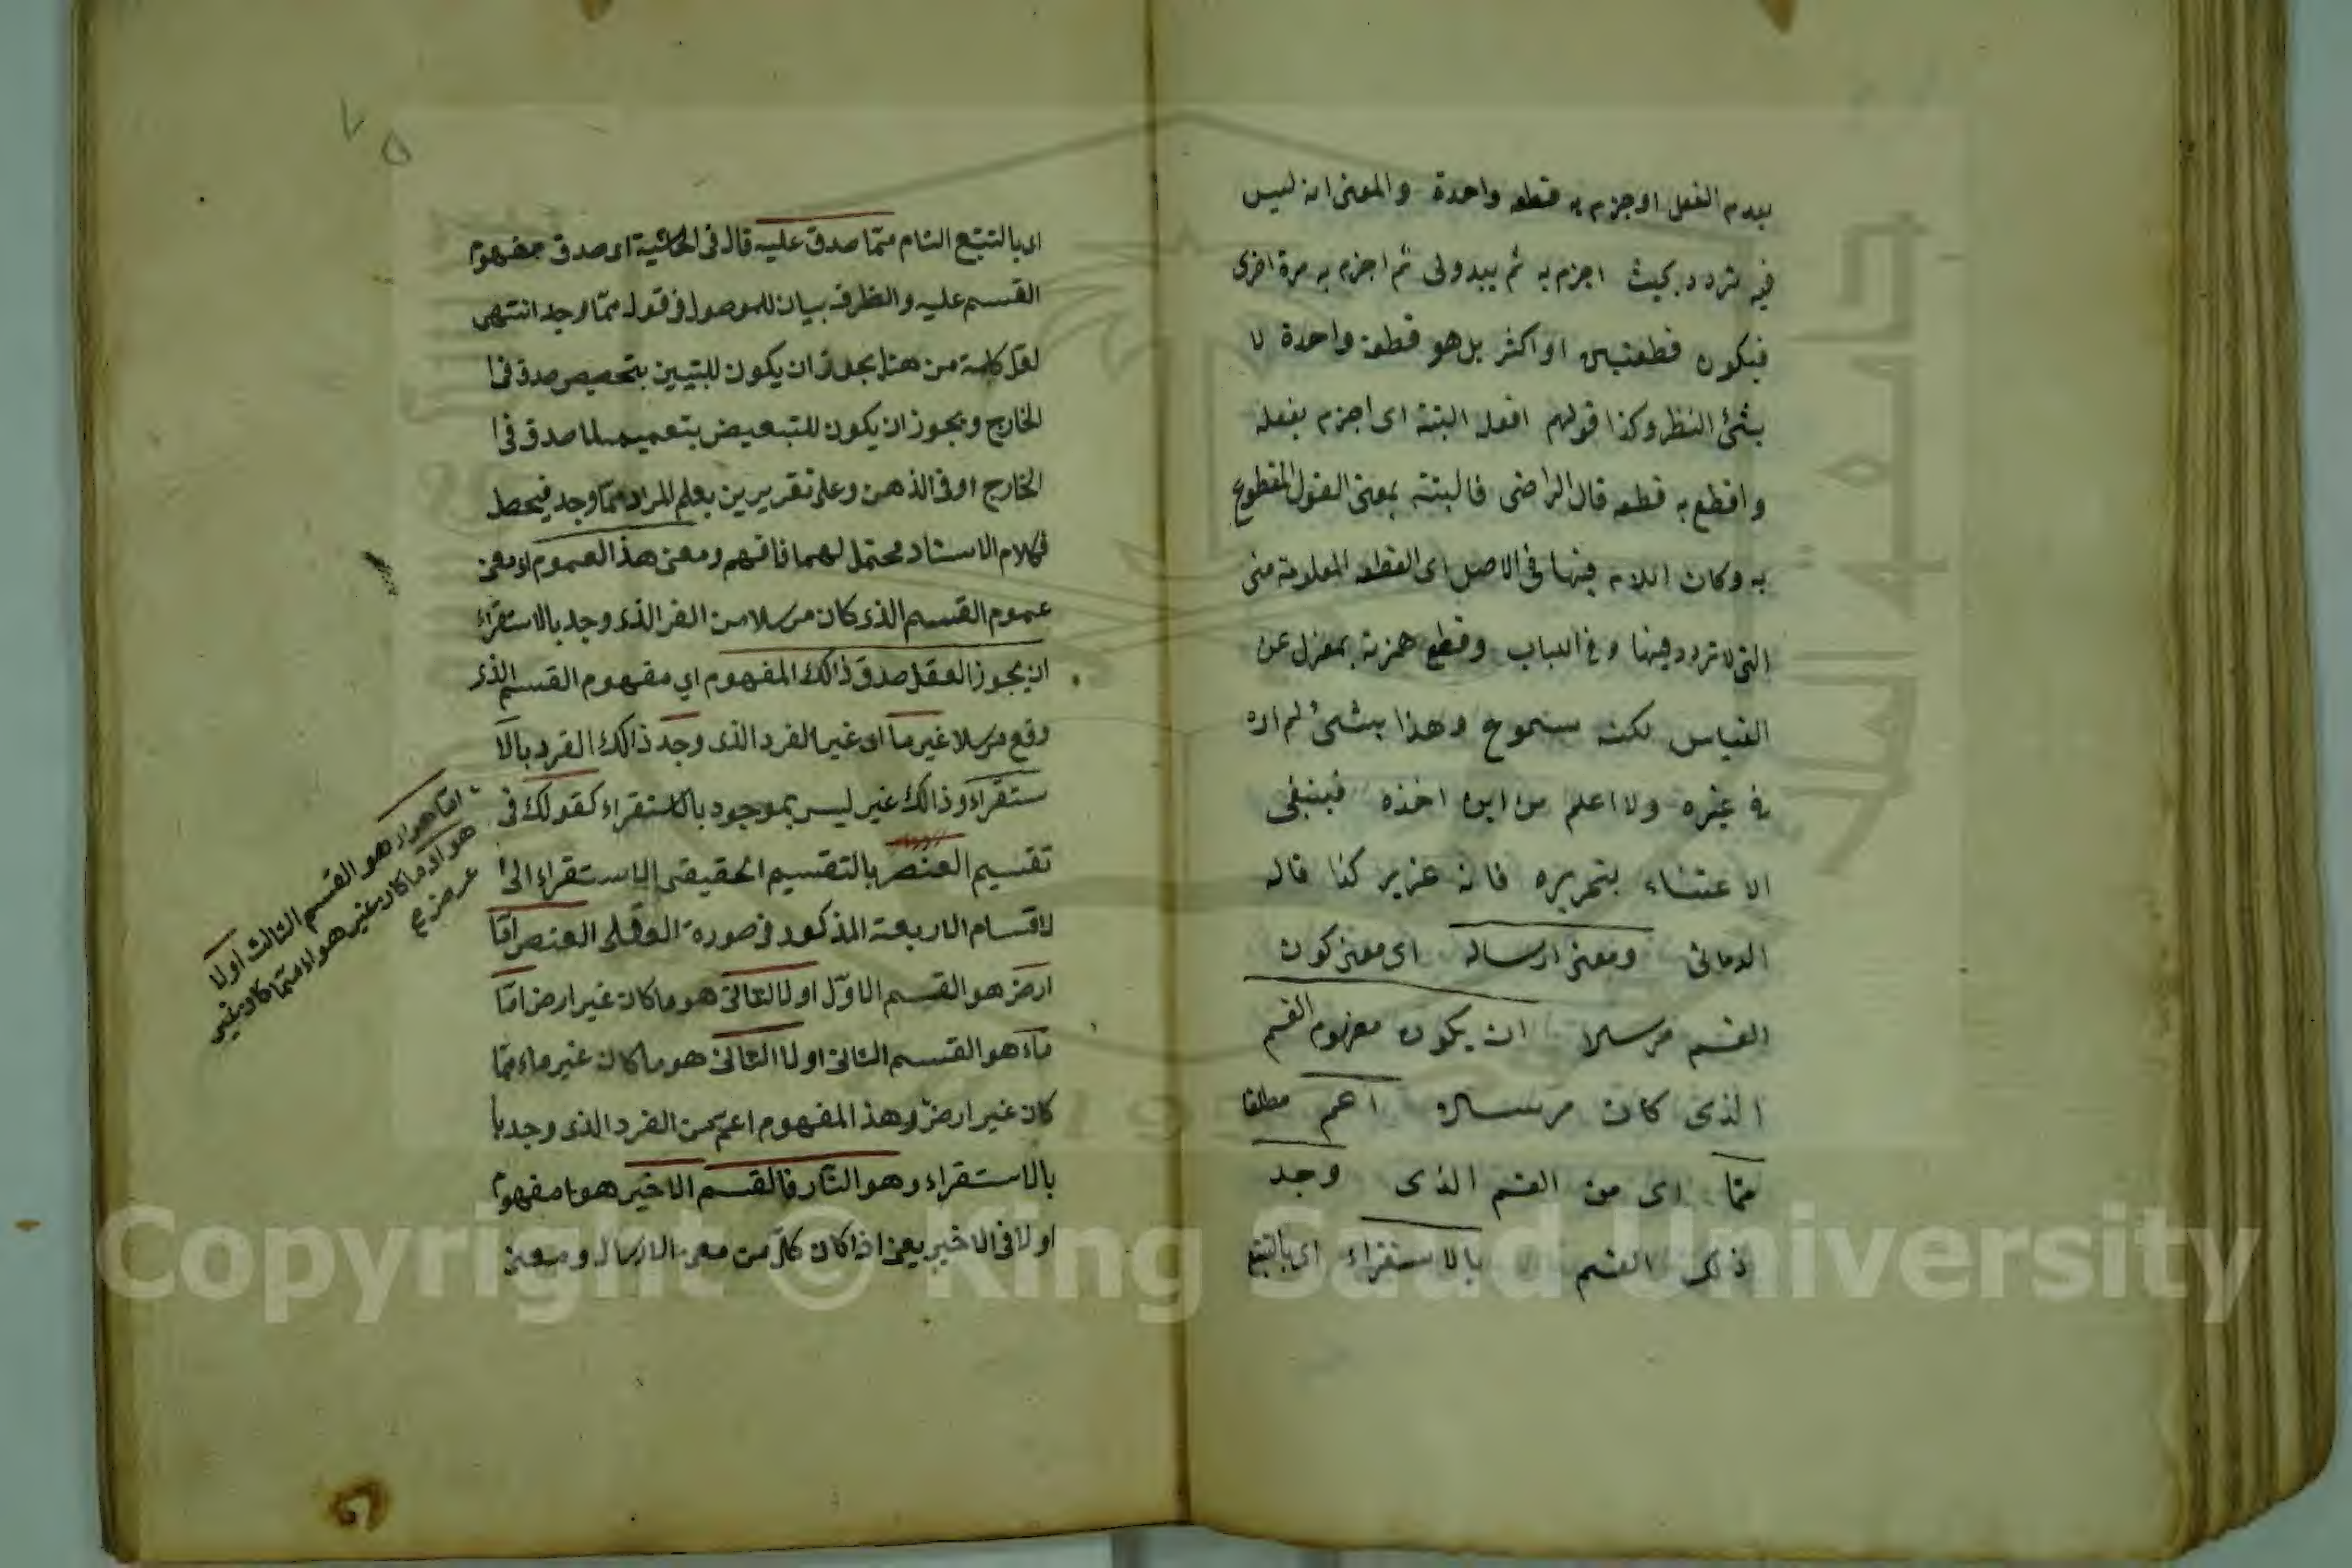 بعدم الفعل او جزم به قطعه واحدة والمعنى انه ليس
فيه تردد بحيث اجزم به ثم يبدو لى ثم اجزم به مرة اخرى
فيكون قطعتين او اكثر بل هو قطعة واحدة لا
يثنى النظر وكذا قولهم افعل البتة اى اجزم بفعله
واقطع به قطعه قال الراضى فالبتة بمعنى القول المقطوع
به وكان اللام فيها فى الاصل اى القطعه المعلومة منى
التى لا تردد فيها وفى اللباب وقطع همزته بمعزل عن
القياس لكنه مسموع وهذا بشئ لم اره
فى غيره ولا اعلم من اين اخذه فينبغى
الاعتناء بتحريره فانه عزيز كذا قاله
الدمانى ومعنى ارساله اى معنى كون
القسم مرسلا ان يكون مفهوم القسم
الذى كان مرسلا اعم مطلقا
ممّا اى من القسم الذى وجد
ذلك القسم بالاستقراء اى بالتتبع
اى بالتتبع التام ممّا صدق عليه قال فى الحاشية اى صدق مفهوم
القسم عليه والظرف بيان للموصول فى قوله ممّا وجد انتهى
لعل كلمة من هنا يجوز ان يكون للتبيين بتخصيص صدق فى ا
لخارج ويجوز ان يكون للتبعيض بتعميم لما صدق فى ا
لخارج او فى الذهن وعلى تقريرين يعلم المراد ممّا وجد فيحصل
فكلام الاستاد محتمل لهما فافهم ومعنى هذا العموم او معنى
عموم القسم الذى كان مرسلا من الفر الذى وجد بالاستقراء
ان يجوز العقل صدق ذالك المفهوم اي مفهوم القسم الذى
وقع مرسلا غير ما اى غير الفرد الذى وجد ذالك الفرد بالا
ستقراء وذالك غير ليس بموجود بالاستقراء كقولك فى
تقسيم العنصر بالتقسيم الحقيقى الاستقراء الى ا
لاقسام الاربعة المذكور فى صورة العقلى العنصر امّا
ارض هو القسم الاوّل او لا الثانى هو ما كان غير ارض امّا
ماء هو القسم الثانى او لا الثانى هو ما كان غير ماء ممّا
كان غير ارض وهذ المفهوم اعمّ من الفرد الذى وجد با
بالاستقراء وهو النّار فالقسم الاخير هو مفهوم
او لا فى الاخير يعنى اذا كان كلّ من معنى الارسال ومعنى
امّا هواء هو القسم الثالث او لا
هو ما كان غير هواء ممّا كان غير